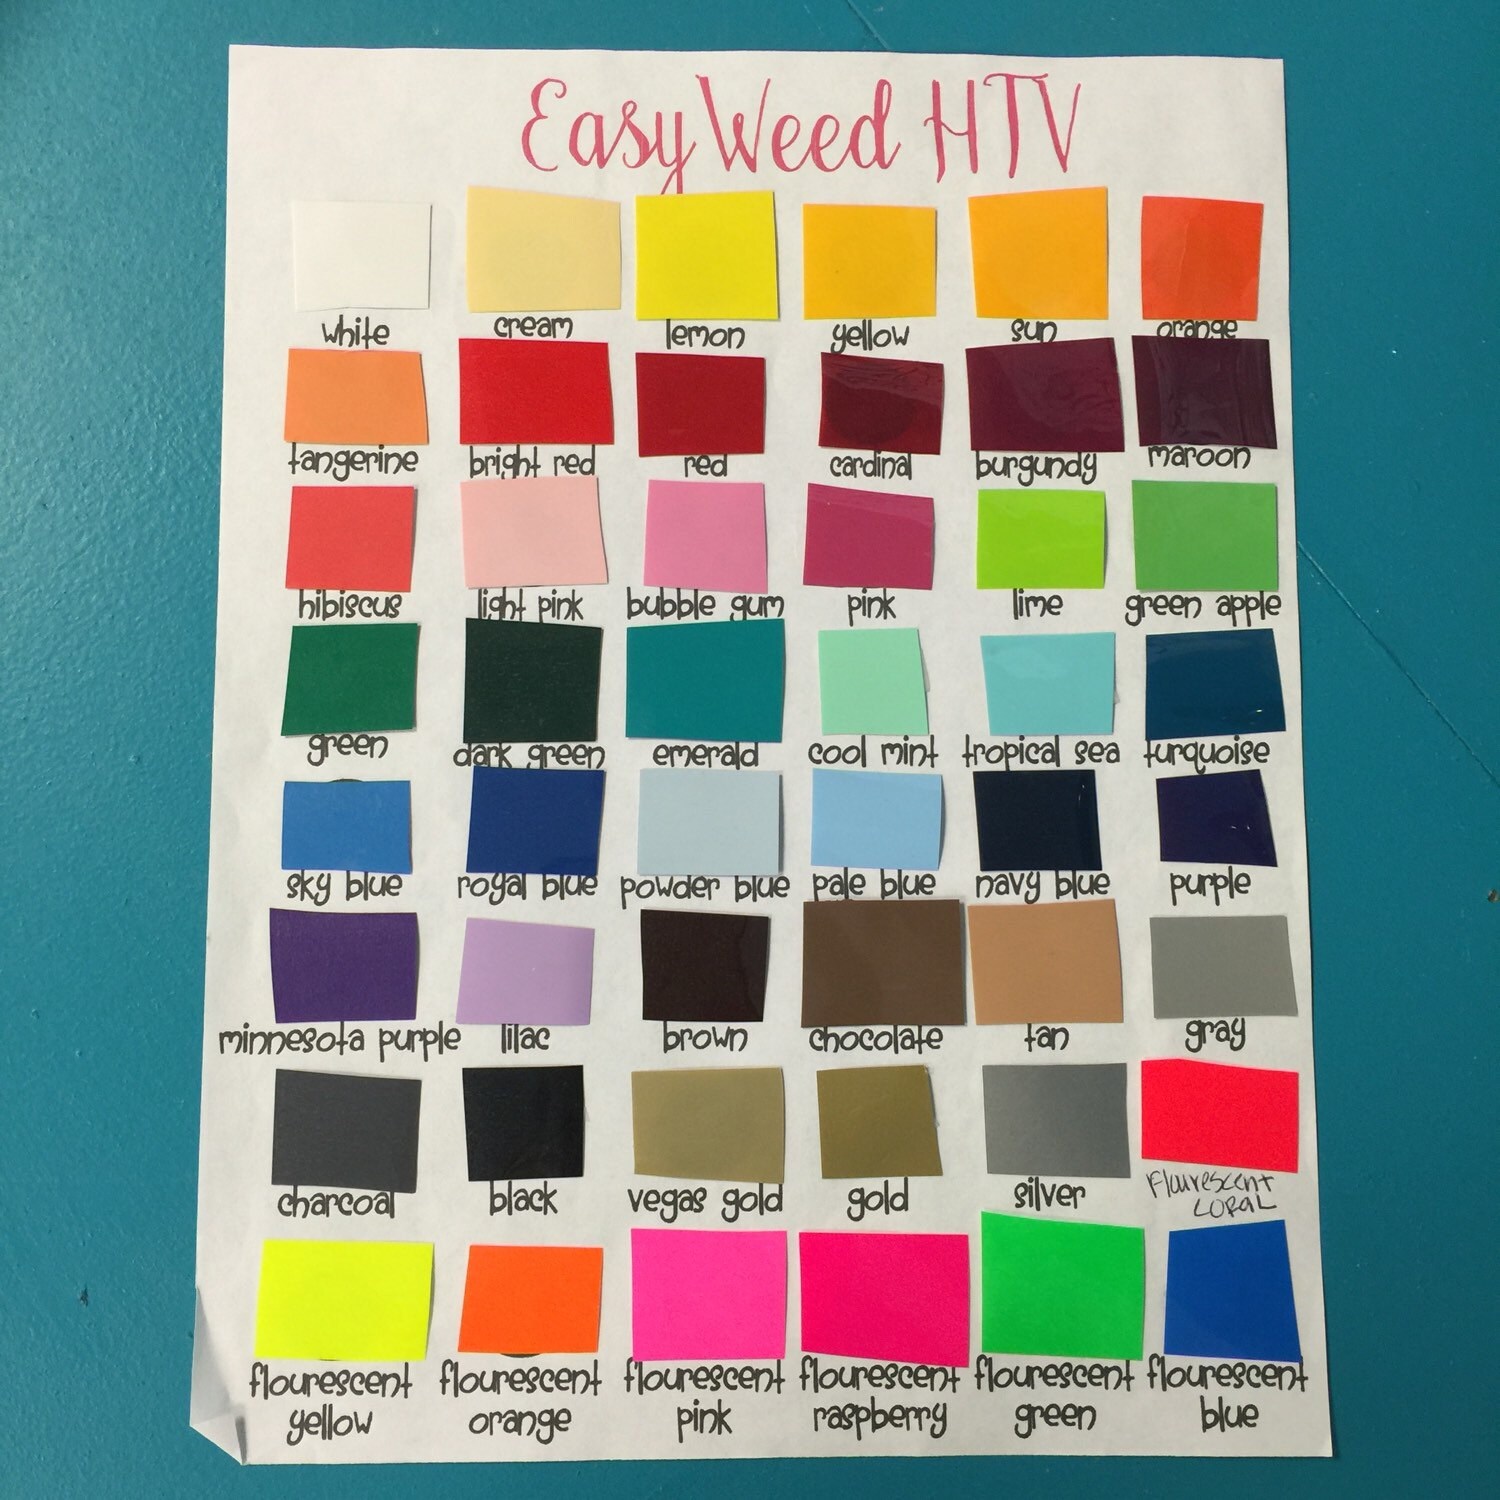 EasyWeed HTV
white cream lemon yellow sun orange
tangerine bright red red cardinal burgundy maroon
hibiscus light pink bubble gum pink lime green apple
green dark green emerald cool mint tropical sea turquoise
sky blue royal blue powder blue pale blue navy blue purple
minnesota purple lilac brown chocolate tan gray
charcoal black vegas gold gold silver Flourescent
CORAL
flourescent flourescent flourescent flourescent flourescent flourescent
yellow orange pink raspberry green blue